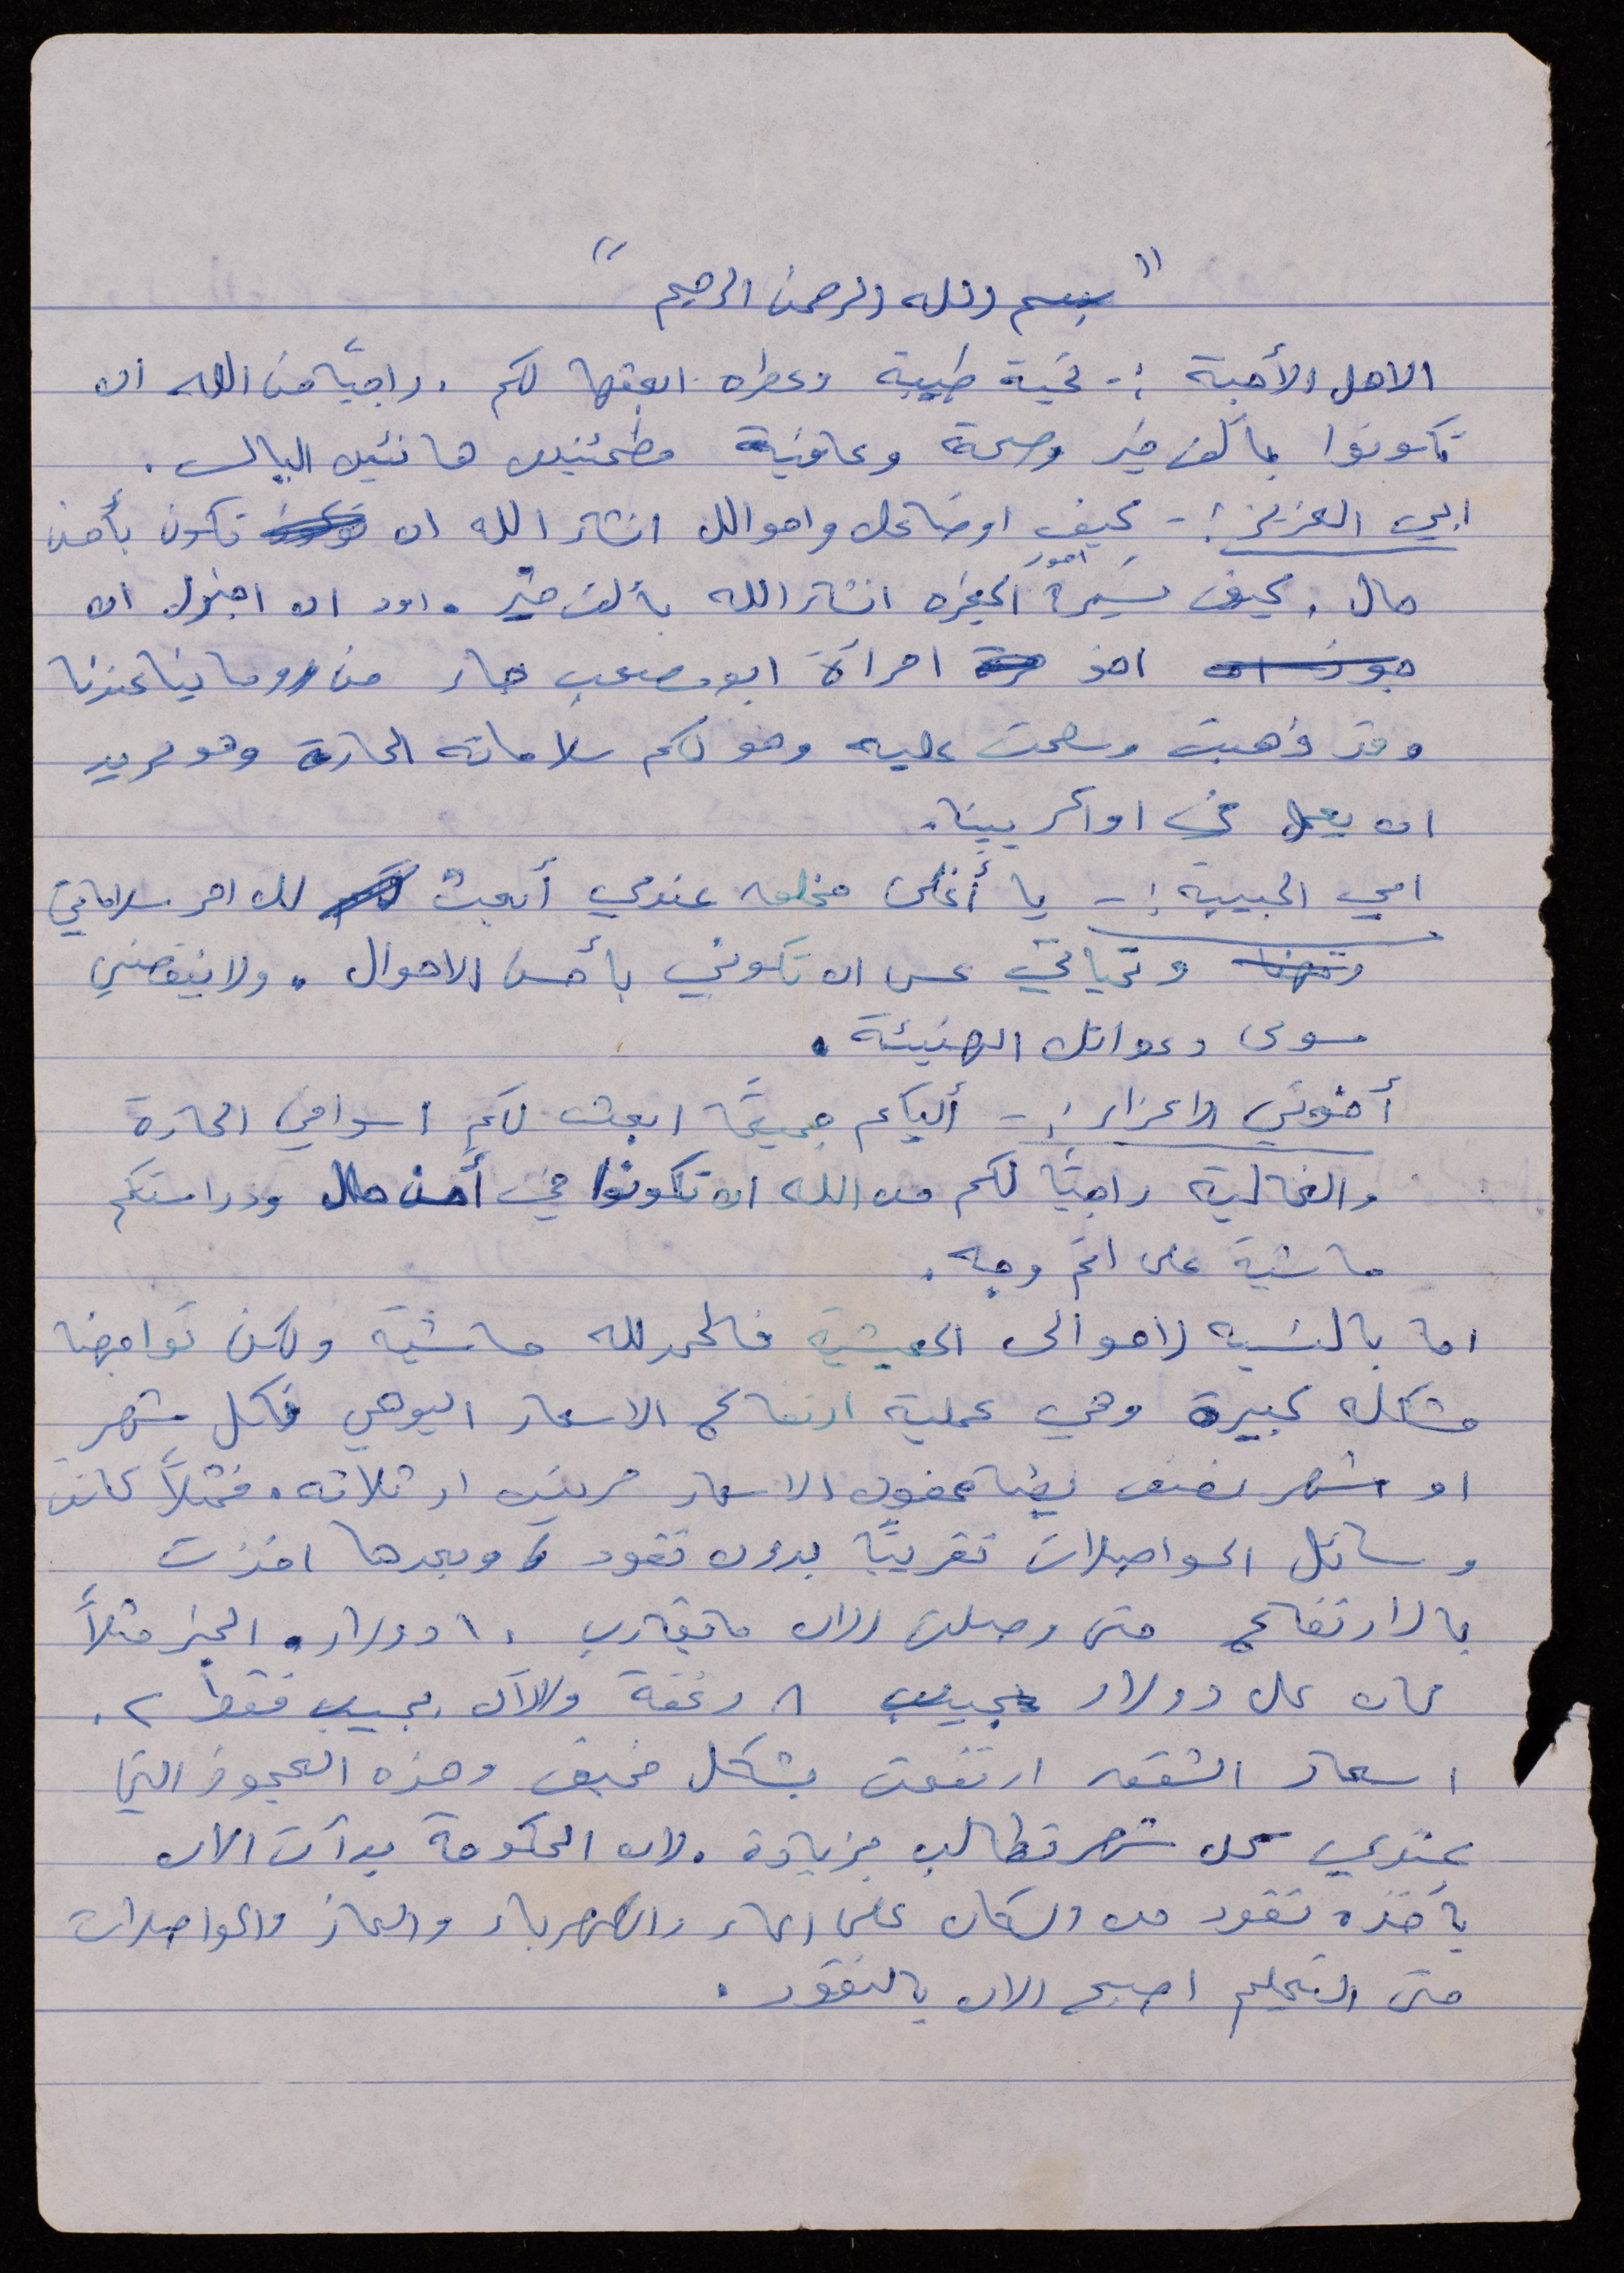 " بسم الله الرحمن الرحيم "
الاهل الأحبة :- تحية طيبة وعطره ابعثها لكم . راجيًا من الله ان
تكونوا بألف خير وصحة وعافية مطمئنين هانئين البال .
ابي العزيز :- كيف اوضاعك واحوالك انشاء الله ان تكون بأحسن
حال . كيف مسيرة امور الحفره انشاء الله بألف خير . اود ان اخبرك ان
اخو امرأة ابو مصعب جاء من رومانيا عندنا
وقد ذهبت وسلمت عليه وهو لكم سلاماته الحارة وهو يريد
ان يعمل في اواكريينا .
امي الحبيبة :- يا أغلى مخلوق عندي أبعث لك احر سلاماتي
وتحياتي عسى ان تكوني بأحسن الاحوال . ولا ينقصني
سوى دعواتك الهنيئة .
أخوتي الاعزاء :- أليكم جميعًا ابعث لكم اسواقي الحارة
والغالية راجيًا لكم من الله ان تكونوا في أحسن حال ودراستكم
ماشية على اتم وجه .
اما بالنسبه لاحوالى المعيشية فالحمدلله ماشية ولكن تواجهنا
مشكله كبيرة وهي عملية ارتفاع الاسعار اليومي فكل شهر
او شهر نصف يضاعفون الاسعار مرتين او ثلاثه . فمثلاً كانت
وسائل المواصلات تقريبًا بدون نقود وبعدها اخذت
بالارتفاع حتى وصلت الان ما يقارب ١٠ دولار . الخبز مثلاً
كان كل دولار بجيب ٨ رغفة والآن بجيب فقط ٢ .
اسعار الشقق ارتفعت بشكل مخيف وهذه العجوز التي
عندي كل شهر تطالب بزيادة . لان الحكومة بدأت الان
يأخذه نقود من السكان على الماء والكهرباء والغاز والمواصلات
حتى التعليم اصبح الان بالنقود .